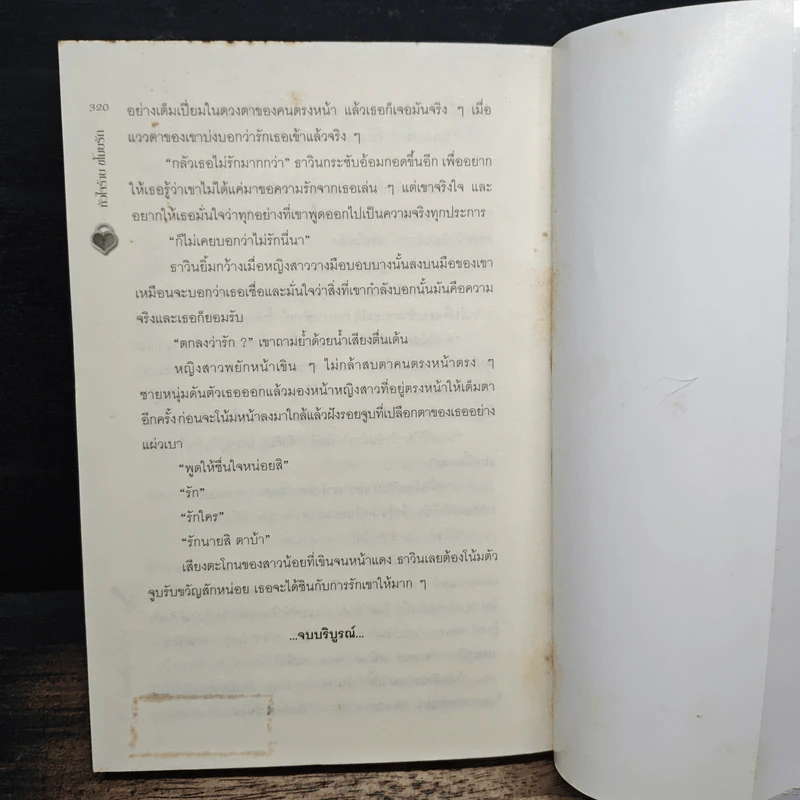 320
หัวใจร้าย ขโมยรัก
อย่างเต็มเปี่ยมในดวงตาของคนตรงหน้า แล้วเธอก็เจอมันจริง ๆ เมื่อ
แววตาของเขาบ่งบอกว่ารักเธอเข้าแล้วจริง ๆ
“กลัวเธอไม่รักมากกว่า” ธาวินกระชับอ้อมกอดขึ้นอีก เพื่ออยาก
ให้เธอรู้ว่าเขาไม่ได้แค่มาขอความรักจากเธอเล่น ๆ แต่เขาจริงใจ และ
อยากให้เธอมั่นใจว่าทุกอย่างที่เขาพูดออกไปเป็นความจริงทุกประการ
“ก็ไม่เคยบอกว่าไม่รักนี่นา”
ธาวินยิ้มกว้างเมื่อหญิงสาววางมือบอบบางนั้นลงบนมือของเขา
เหมือนจะบอกว่าเธอเชื่อและมั่นใจว่าสิ่งที่เขากำลังบอกนั้นมันคือความ
จริงและเธอก็ยอมรับ
“ตกลงว่ารัก ?” เขาถามย้ำด้วยน้ำเสียงตื่นเต้น
หญิงสาวพยักหน้าเขิน ๆ ไม่กล้าสบตาคนตรงหน้าตรง ๆ
ชายหนุ่มดันตัวเธอออกแล้วมองหน้าหญิงสาวที่อยู่ตรงหน้าให้เต็มตา
อีกครั้ง ก่อนจะโน้มหน้าลงมาใกล้แล้วฝังรอยจูบที่เปลือกตาของเธออย่าง
แผ่วเบา
“พูดให้ชื่นใจหน่อยสิ”
“รัก”
“รักใคร”
“รักนายสิ ตาบ้า”
เสียงตะโกนของสาวน้อยที่เขินจนหน้าแดง ธาวินเลยต้องโน้มตัว
จูบรับขวัญสักหน่อย เธอจะได้ชินกับการรักเขาให้มาก ๆ
...จบบริบูรณ์...